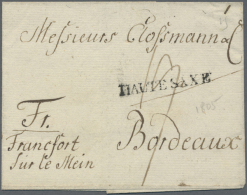 Messieurs Clossmann &
HAUTE SAXE
1805
Fr.
Bordeaux
Francfort
sur le Mein